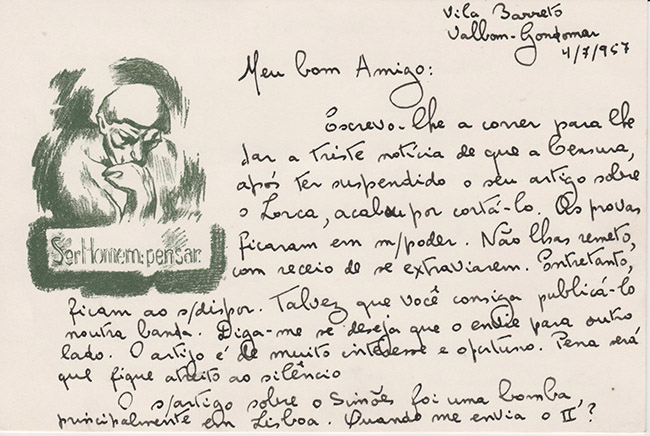 Vila Barreto
Valbom-Gondomar
4/7/957
Meu bom Amigo:
Escrevo-lhe a correr para lhe
dar a triste notícia de que a Censura,
após ter suspendido o seu artigo sobre
o Lorca, acabou por cortá-lo. As provas
ficaram em m/poder. Não lhas remeto,
com receio de se extraviarem. Entretanto,
ficam ao s/dispor. Talvez que você consiga publicá-lo
noutra banda. Diga-me se deseja que o envie para outro
lado. O artigo é de muito interesse e oportuno. Pena será
que fique atreito ao silêncio
O s/artigo sobre o Simões foi uma bomba,
principalmente em Lisboa. Quando me envia o II?
Ser Homem: pensar.